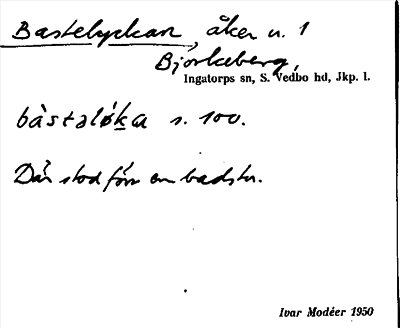 Bastelyckan, åker n. 1
Björkeberg,
Ingatorps sn, S. Vedbo hd, Jkp. l.
bàstalø̀ka s. 100.
Där stod förr en badstu.
Ivar Modéer 1950